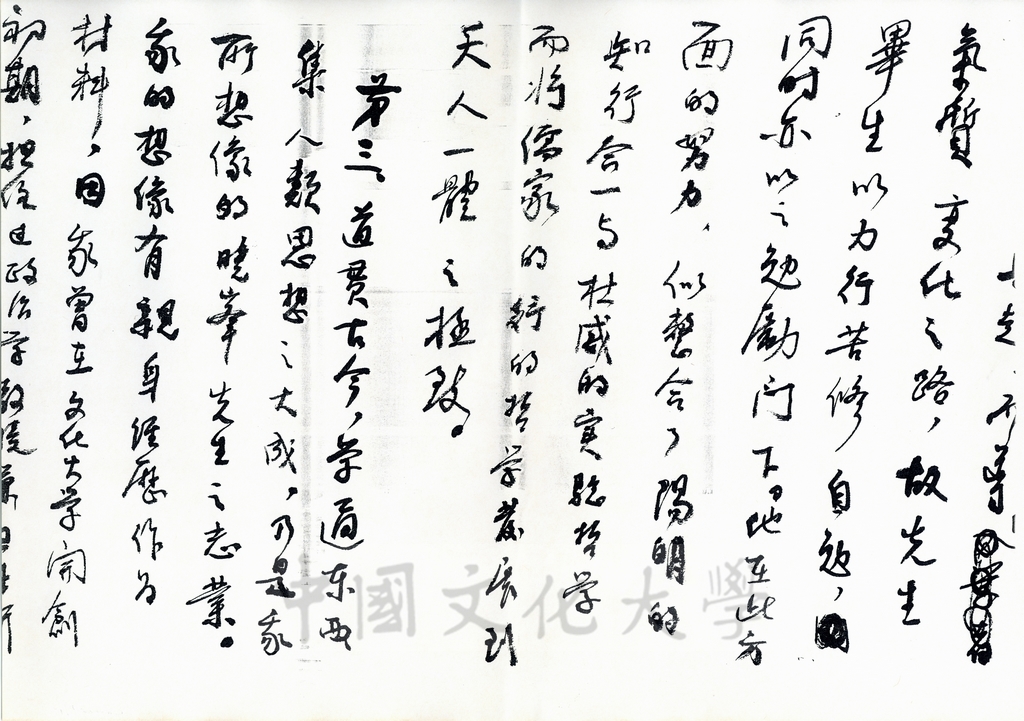 氣質变化之路，故先生
畢生以力行苦修自勉，
同时亦以之勉勵门下。他在此方
面的努力，似整合了陽明的
知行合一与杜威的实驗哲学
而将儒家的行的哲学發展到
天人一體之極致。
第三道贯古今，学通东西
集人類思想之大成，乃是我
所想像的曉峯先生之志業。
我的想像有親身經歷作为
材料，因我曾在文化大学開創
初期，担任过政治学
中國文化大學